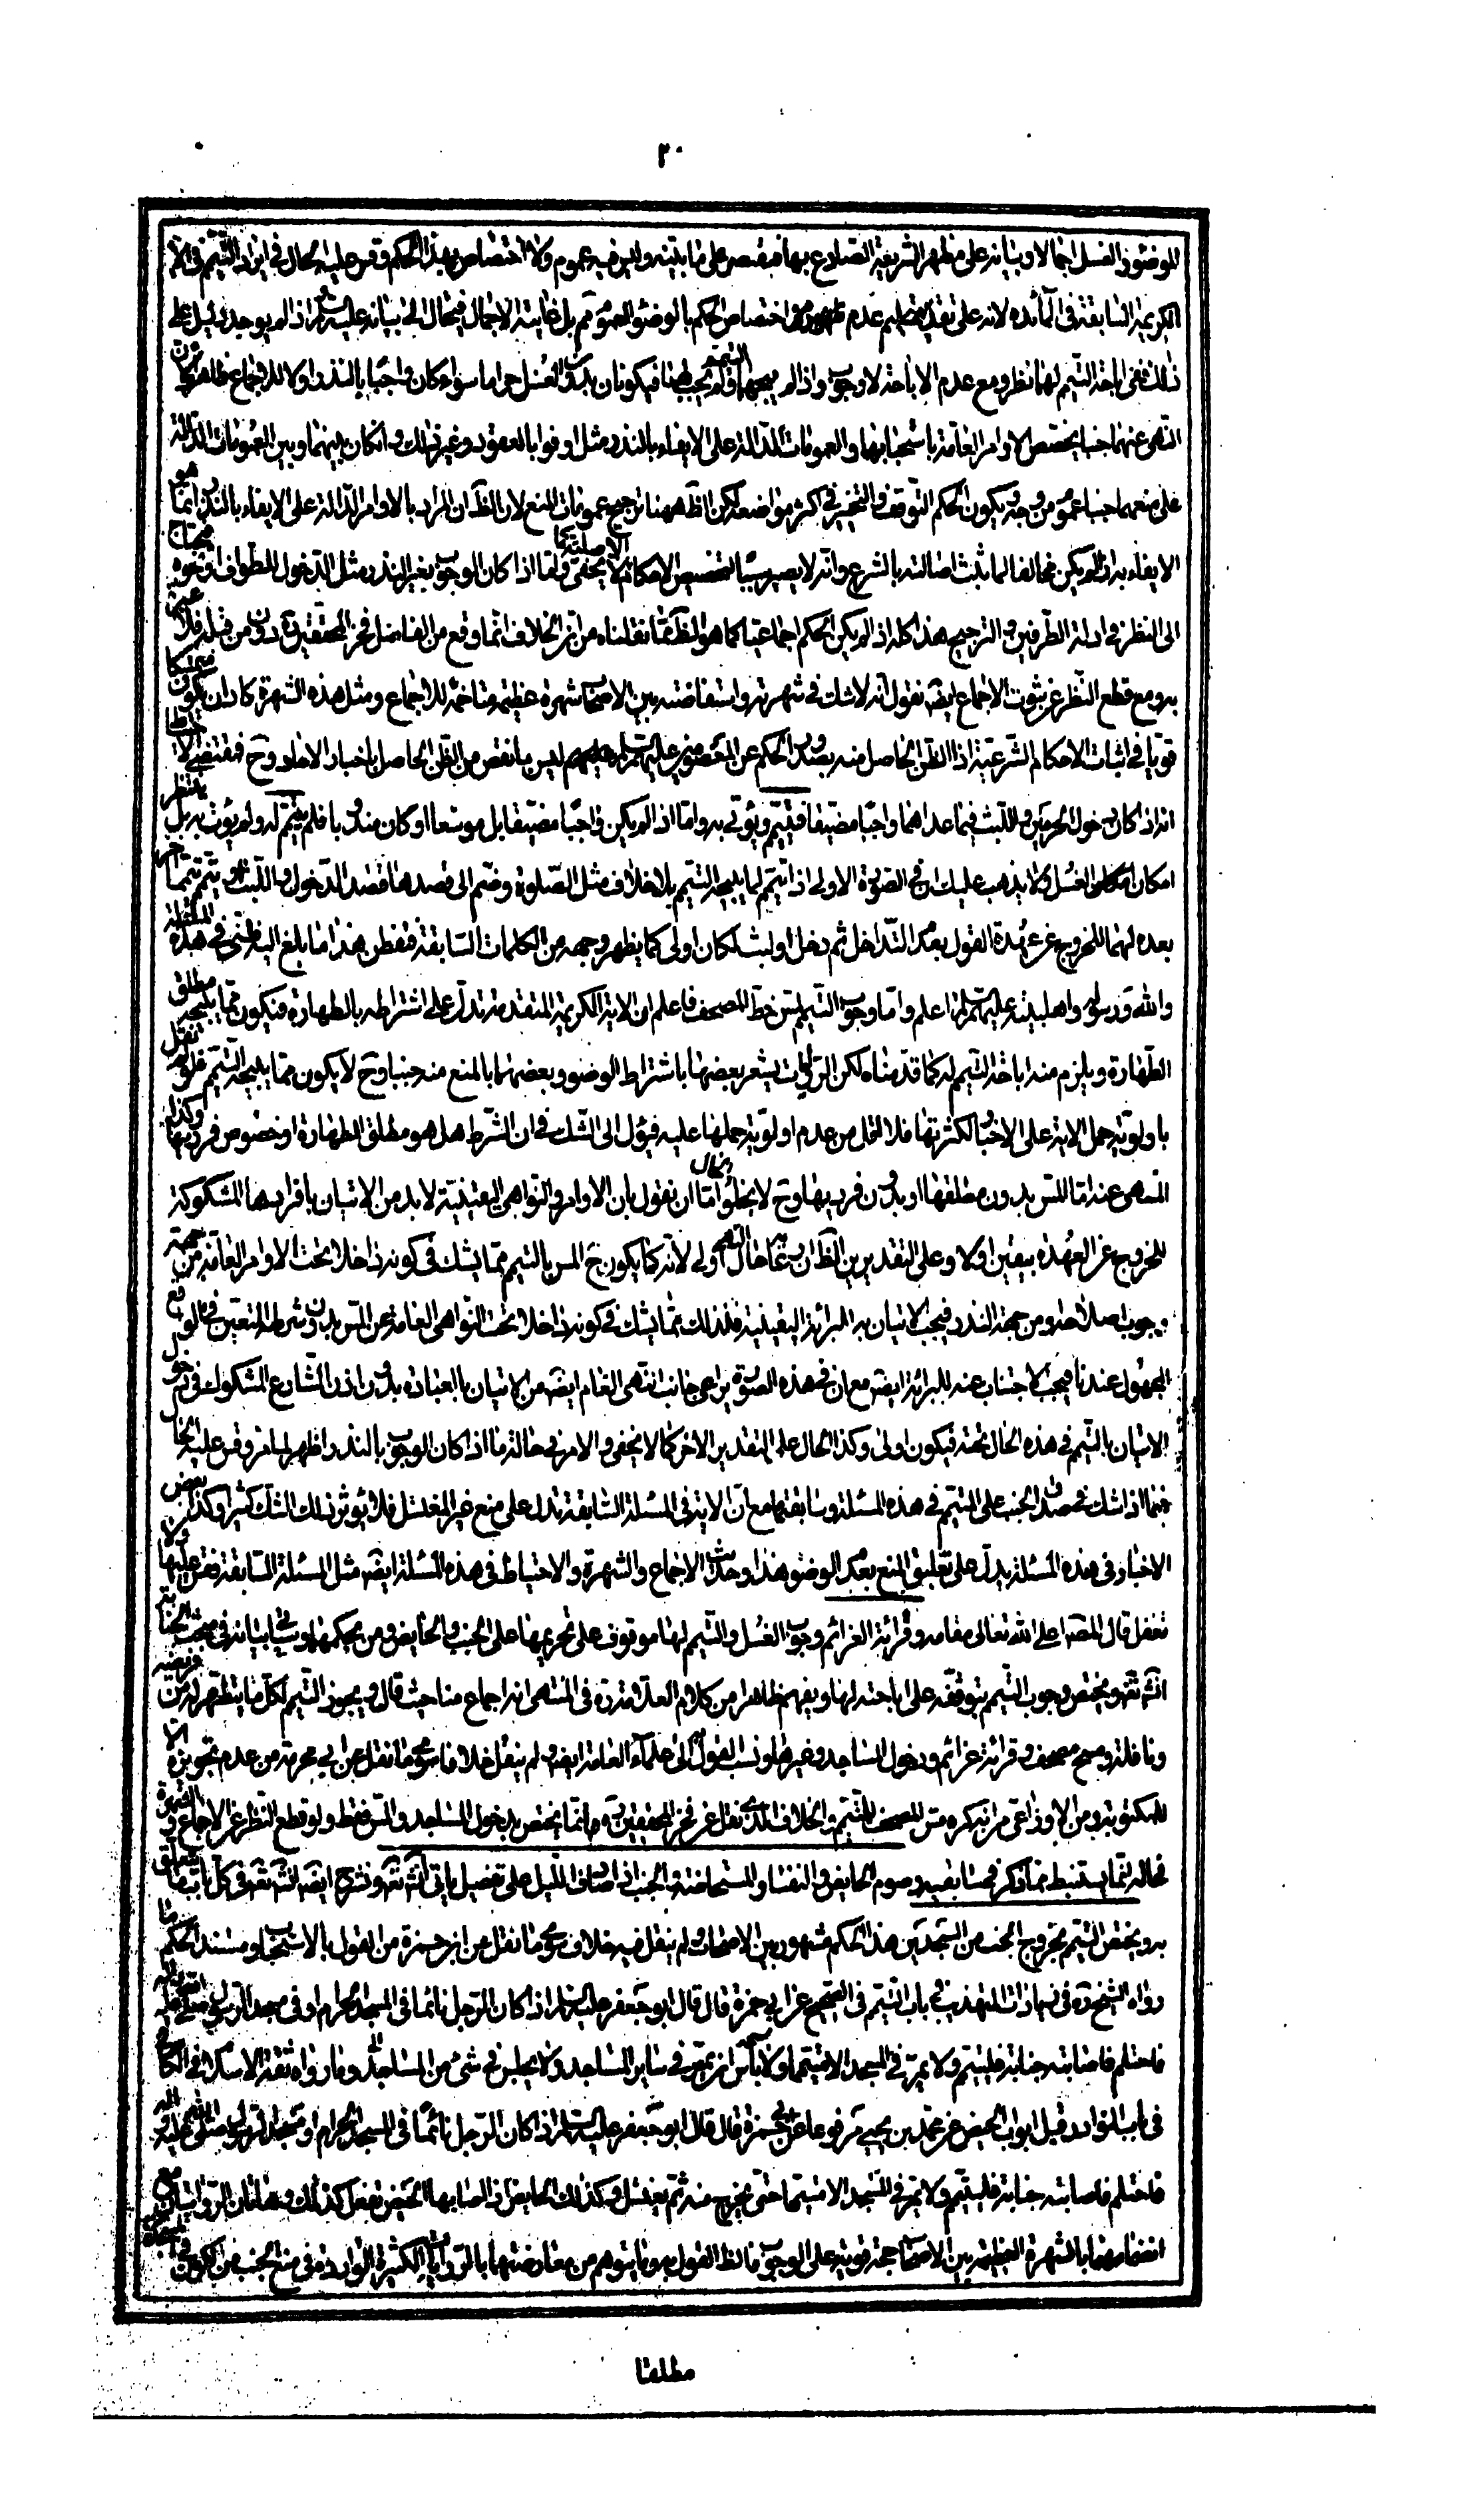 ٢٠
للوضوء والغسل اجمالا وبيانه على مظهر الشريعة الصادع بها فيقتصر على ما بينه وليس فيه عموم ولا اختصاص بهذا الحكم وقس عليه الحال في ايراد التيمم في الآية
الكريمة السابقة في المائدة لانه على تقدير تسليم عدم اختصاص الحكم بالوضوء العموم ثم بل غايته الاجمال فيحال الى بيانه عليه السلام واذا لم يوجد دليل على
ذلك ففي اباحة التيمم لهما نظر ومع عدم الاباحة لا وجوب واذا لم يبحهما التيمم ولم يجب لهما فيكونان بدون الغسل حراما سواء كان واجبا بالنذر او لا للاجماع ظاهرا
النهي عنهما جنبا يخصص الاوامر العامة باستحبابهما والعمومات الدالة على الايفاء بالنذر مثل اوفوا بالعقود وغير ذلك وان كان بينهما وبين العمومات الدالة
على منعهما جنبا عموم من وجه ويكون الحكم التوقف والتخيير في اكثر مواضعه لكن الظاهر هنا ترجيح عمومات المنع لان الظ ان المراد بالاوامر الدالة على الايفاء بالنذر انما هو
الايفاء به اذا لم يكن مخالفا لما يثبت اصالته بالشرع وانه لا يصير سببا لتخصيص الاحكام الاصلية كما لا يخفى واما اذا كان الوجوب بغير النذر مثل الدخول للطواف وغيره محتاج
الى النظر في ادلة الطرفين والترجيح هذا كله اذا لم يكن الحكم اجماعيا كما هو الظ مما نقلناه من ان الخلاف انما وقع من الفاضل فخر المحققين دون من قبله فلا عبرة
به ومع قطع النظر عن ثبوت الاجماع ايضا نقول انه لا شك في شهرته واستفاضته بين الاصحاب شهرة عظيمة متاخمة للاجماع ومثل هذه الشهرة كاد ان يكون متمسكا
قويا في اثبات الاحكام الشرعية اذ الظن الحاصل منه بصدور الحكم عن المعصومين عليهم السلام ليس بانقص من الظن الحاصل باخبار الاحاد وح فمقتضى الاحتياط
انه اذا كان دخول الحرمين واللبث فيما عداهما واجبا مضيقا فيتيمم ويؤتى به واما اذا لم يكن واجبا مضيقا بل موسعا او كان مندوبا فلم يتيمم له ولم يؤت به بل ينتظر
امكان الغسل ولا يذهب عليك ان في الصورة الاولى اذا تيمم لما يبيحه التيمم بلا خلاف مثل الصلوة وضم الى قصدها قصد الدخول واللبث او يتيمم تيمما اخر
بعده لهما للخروج عن عهدة القول بعدم التداخل ثم دخل او لبث لكان اولى كما يظهر وجهه من الكلمات السابقة فتفطن هذا ما بلغ اليه ظني في هذه المسئلة
والله ورسوله واهل بيته عليهم السلام اعلم واما وجوب التيمم لمس خط المصحف فاعلم ان الاية الكريمة المتقدمة تدل على اشتراطه بالطهارة فيكون مما يبيحه مطلق
الطهارة ويلزم منه اباحة التيمم له كما قدمناه لكن الروايات يشعر بعضها باشتراط الوضوء وبعضها بالمنع منه جنبا وح لا يكون مما يبيحه التيمم فلو لم نقل
باولوية حمل الاية على الاخبار لكثرتها فلا اقل من عدم اولوية حملها عليه فيؤل الى الشك في ان الشرط هل هو مطلق الطهارة او خصوص فرديها وكذا
المنهي عنه اما المس بدون مطلقها او بدون فرديها وح لا يخلو الحال اما ان نقول بان الاوامر والنواهي اليقينية لا بد من الاتيان بافرادها المشكوكة
للخروج عن العهدة بيقين او لا وعلى التقديرين الظ ان رعاية حال النهي اولى لانه كما يكون ح المس بالتيمم مما يشك في كونه داخلا تحت الاوامر العامة من جهة
وجوب اصلاحه ومن جهة النذر فيجب الاتيان به للبراءة اليقينية فكذلك مما يشك في كونه داخلا تحت النواهي العامة عن المس بدون شرطه المتعين في الواقع
المجهول عندنا فيجب الاجتناب عنه للبراءة ايضا مع ان في هذه الصورة يراعى جانب النهي العام ايضا من الاتيان بالعبادة بدون اذن الشارع المشكوك في دخول
الاتيان بالتيمم في هذه الحال تحته فيكون اولى وكذا الحال على التقدير الاخر كما لا يخفى والامر في حالة ما اذا كان الوجوب بالنذر اظهر لما مر وقس عليه الحال
فيما اذا شك في صدق الجنب على المتيمم في هذه المسئلة وسابقتها مع ان الاية في المسئلة السابقة تدل على منع غير المغتسل فلا يؤثر ذلك الشك كثيرا وكذا بعض
الاخبار في هذه المسئلة يدل على تعليق المنع بعدم الوضوء هذا وحديث الاجماع والشهرة والاحتياط في هذه المسئلة ايضا مثل المسئلة السابقة فقس عليها ولا
تغفل قال المصنف اعلى الله تعالى مقامه وقراءة العزائم وجوب الغسل والتيمم لها موقوف على تحريمها على الجنب والحايض ومن بحكمهما وسيجئ بيانه في مبحث الجنابة
انشاء الله تعالى ويختص وجوب التيمم بتوقفه على اباحته لها ويفهم ظاهرا من كلام العلامة ره في المنتهى انه اجماع منا حيث قال ويجوز التيمم لكل ما يتطهر له من فريضة
ونافلة ومس مصحف وقراءة عزائم ودخول المساجد وغيرها ونسب القول الى علماء العامة ايضا ولم ينقل خلافا سوى ما نقل عن ابي مخرمة من عدم تجويزه الا
للمكتوبة ومن الاوزاعي من انه كره مس المصحف للمتيمم والخلاف الذي نقل عن فخر المحققين ره انما يختص بدخول المساجد والمس فقط ولو قطع النظر عن الاجماع والشهرة
فحاله مما يستنبط مما ذكر في سابقيه وصوم الحايض والنفساء والمستحاضة والجنب اذا صادف الليل على تفصيل ياتي انشاء الله تعالى ونشرح ايضا انشاء الله تعالى في كل باب ما يتعلق
به ويختص التيمم بخروج الجنب من المسجدين هذا الحكم مشهور بين الاصحاب ولم ينقل فيه خلاف سوى ما نقل من ابن حمزة من القول بالاستحباب ومستند الحكم ما
رواه الشيخ ره في زيادات التهذيب في باب التيمم في الصحيح عن ابي حمزة قال قال ابو جعفر عليه السلام اذا كان الرجل نائما في المسجد الحرام او في مسجد الرسول صلى الله عليه واله
فاحتلم فاصابته جنابة فليتيمم ولا يمر في المسجد الا متيمما ولا باس ان يمر في ساير المساجد ولا يجلس في شئ من المساجد وما رواه ثقة الاسلام في الكافي
في باب النوادر قبل ابواب الحيض عن محمد بن يحيى مرفوعا عن ابي حمزة قال قال ابو جعفر عليه السلام اذا كان الرجل نائما في المسجد الحرام او مسجد الرسول صلى الله عليه واله
فاحتلم فاصابته جنابة فليتيمم ولا يمر في المسجد الا متيمما حتى يخرج منه ثم يغتسل وكذلك الحايض اذا اصابها الحيض تفعل كذلك وهاتان الروايتان مع
انضمامهما بالشهرة العظيمة بين الاصحاب حجة قوية على الوجوب فالظ القول به وما يتوهم من معارضتهما بالروايات الكثيرة الواردة في منع الجنب من الكون في المسجد
مطلقا